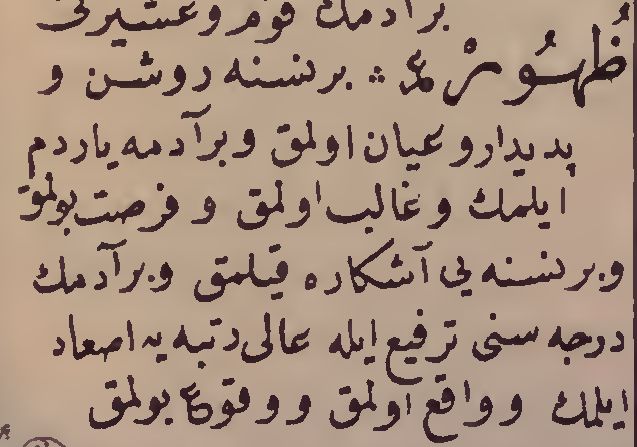 بر آدمك قوم وعشيرتى
ظُهُورْ ع ؞ بر نسنه روشن و
پديدار و عيان اولمق وبر آدمه ياردم
ايلمك وغالب اولمق و فرصت بولمق
وبر نسنه يى آشكاره قيلمق وبر آدمك
درجه سنى ترفيع ايله عالى رتبه يه اصعاد
ايلمك و واقع اولمق و وقوع بولمق